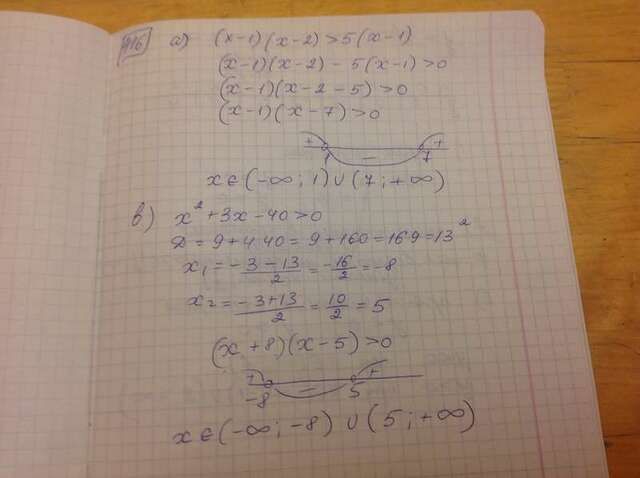 916 а) (x-1)(x-2)>5(x-1)
(x-1)(x-2)-5(x-1)>0
(x-1)(x-2-5)>0
(x-1)(x-7)>0
+ 1 - 7 +
x∈(-∞;1)∪(7;+∞)
в) x²+3x-40>0
D=9+4·40=9+160=169=13²
x₁=(-3-13)/2=-16/2=-8
x₂=(-3+13)/2=10/2=5
(x+8)(x-5)>0
+ -8 - 5 +
x∈(-∞;-8)∪(5;+∞)